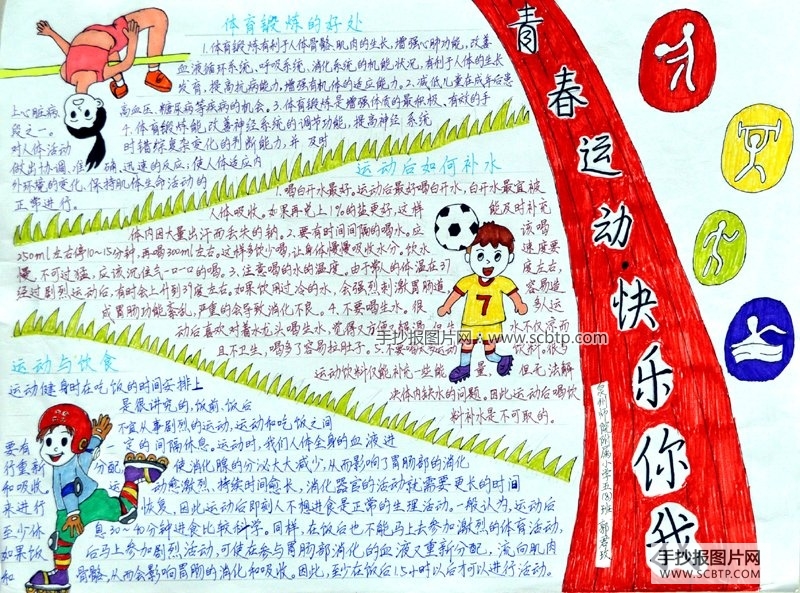 体育锻炼的好处
1.体育锻炼有利于人体骨骼、肌肉的生长,增强心肺功能,改善
血液循环系统、呼吸系统、消化系统的机能状况,有利于人体的生长
发育,提高抗病能力,增强有机体的适应能力。2.减低儿童在成年后患
上心脏病, 高血压、糖尿病等疾病的机会。3.体育锻炼是增强体质的最积极、有效的手
段之一。 4.体育锻炼能改善神经系统的调节功能,提高神经系统
对人体活动 时错综复杂变化的判断能力,并及时
做出协调、准确、迅速的反应;使人体适应内
外环境的变化,保持肌体生命活动的
正常进行。
运动后如何补水
1.喝白开水最好。运动后最好喝白开水,白开水最宜被
人体吸收。如果再兑上1%的盐更好,这样 能及时补充
体内因大量出汗而丢失的钠。2.要有时间间隔的喝水。应 该喝
250ml左右停10~15分钟,再喝300ml左右。这样多饮少喝,让身体慢慢吸收水分。饮水 速度要
慢,不可过猛,应该沉住气一口一口的喝。3.注意喝的水的温度。由于常人的体温在37 度左右,
经过剧烈运动后,有时会上升到39度左右。如果饮用过冷的水,会强烈刺激胃肠道 容易造
成胃肠功能紊乱,严重的会导致消化不良。4.不要喝生水。很 多人运
动后喜欢对着水龙头喝生水,觉得又方便又解渴, 水不仅凉而
且不卫生,喝多了容易拉肚子。5.不要喝太多运动 饮料。很多
运动饮料仅能补充一些能量, 但无法解
决体内缺水的问题。因此运动后喝饮
料补水是不可取的。
运动与饮食
运动健身时在吃饭的时间安排上
是很讲究的,饭前、饭后
不宜从事剧烈的运动,运动和吃饭之间
要有 一定的间隔休息。运动时,我们人体全身的血液进
行重新 分配, 使消化腺的分泌大大减少,从而影响了胃肠部的消化
和吸收。 运 动愈激烈、持续时间愈长,消化器官的活动就需要更长的时间
来进行 恢复,因此运动后即刻人不想进食是正常的生理活动。一般认为,运动后
至少休 息30~40分钟进食比较科学。同样,在饭后也不能马上去参加激烈的体育活动,
如果饭 后马上参加剧烈活动,可使在参与胃肠部消化的血液又重新分配,流向肌肉
和 骨骼,从而会影响胃肠的消化和吸收。因此,至少在饭后1.5小时以后才可以进行活动。
青春运动·快乐你我
泉州师院附属小学五(8)班 郭若玫
7
手抄报图片网:www.scbtp.com
手抄报图片网
WWW.SCBTP.COM